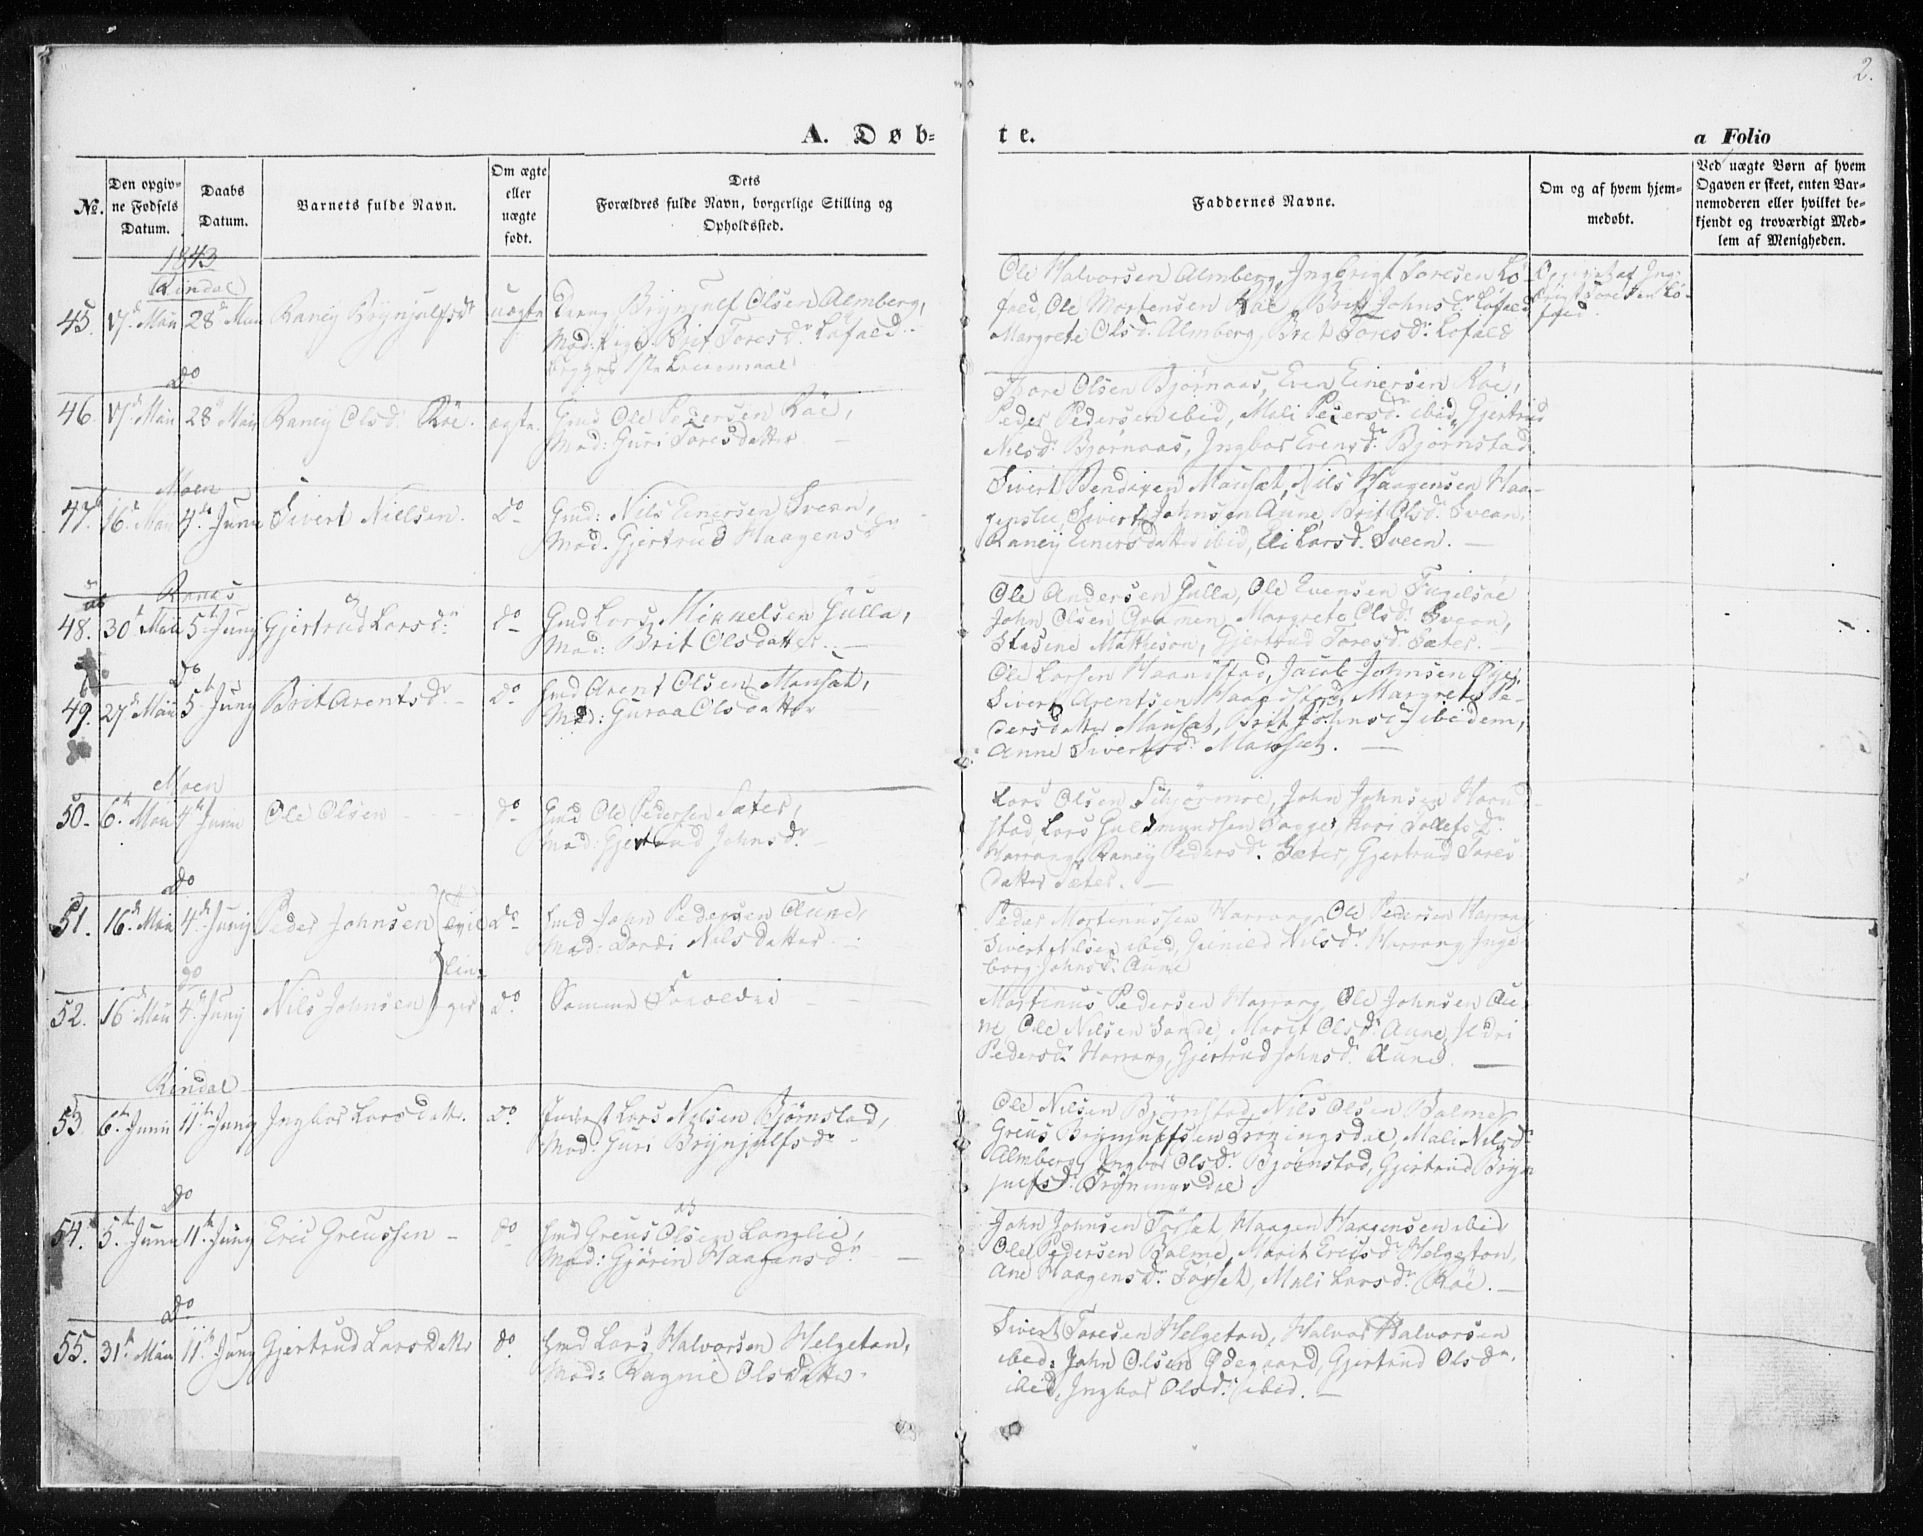 2.
A. Døb-
te.
a Folio
No.
Den opgiv-
ne Fødsels
Datum.
Daabs
Datum.
Barnets fulde Navn.
Om ægte
eller
uægte
født.
Dets
Forældres fulde Navn, borgerlige Stilling og
Opholdssted.
Faddernes Navne.
Om og af hvem hjem-
medøbt.
Ved uægte Børn af hvem
Opgaven er skeet, enten Bar-
nemoderen eller hvilket be-
kjendt og troværdigt Med-
lem af Menigheden.
1843
Rindal
45. 17de Maii 28de Maii Raney Brynjulfsdr uægte Brynjulf Olsen Almberg,
Mod: Pige Brit Toresdr Løfald
Ole Halvorsen Almberg, Ingbrigt Toresen Lø-
fald, Ole Mortensen Röe, Brit Johnsdr Løfald
Margrete Olsdr Almberg, Brit Toresdr Løfald
Do
46. 17de Maii 28de Maii Raney Olsdr Röe. ægte. Gmd Ole Pedersen Röe,
Mod: Guri Toresdatter
Tore Olsen Bjørnaas, Even Einersen Röe,
Peder Pedersen ibid, Mali Pedersdr ibid, Gjertrud
Nilsdr Bjørnaas, Ingbor Evensdr Bjørnstad.
Moen
47. 16de Maii 4de Junii Sivert Nielsen. Do Gmd: Nils Einersen Svean,
Mod. Gjertrud Haagensdr
Sivert Bendixen Mausæt, Nils Haagensen Haa-
genslie, Sivert Johnsen Aune, Brit Olsdr Svean,
Raney Einersdatter ibid, Eli Larsdr Sveen.
Ranæs
48. 30te Maii 5te Junij Gjertrud Larsdr do Gmd Lars Mikkelsen Gulla,
Mod: Brit Olsdatter
Ole Andersen Gulla, Ole Evensen Fugelsøe
John Olsen Qvamen, Margrete Olsdr Svean,
Stasine Mathieson, Gjertrud Toresdr Sæter.
Do
49. 27de Maii 5te Junij Brit Arentsdr Do Gmd Arent Olsen Mausæt,
Mod: Guroa Olsdatter
Ole Larsen Haandstad, Jacob Johnsen Øye,
Sivert Arentsen Haandstad, Margrete Pe-
dersdatter Mausæt, Brit Johnsdr ibidem,
Anne Sivertsdr Mausæt.
Moen
50. 6te Maii 4de Junii Ole Olsen do Gmd Ole Pedersen Sæter,
Mod: Gjertrud Johnsdr
Lars Olsen Schjørmoe, John Johnsen Haand-
stad, Lars Guldmundsen Bagge, Kari Tollefsdr
Harrang, Raney Pedersdr Sæter, Gjertrud Tores-
datter Sæter.
Do
51. 16de Maii 4de Junij Peder Johnsen Do Gmd John Pedersen Aune,
Mod: Dordi Nilsdatter
Tvil-
lin-
ger
Peder Mortinussen Harrang, Ole Pedersen Harrang
Sivert Nilsen ibid, Gunild Nilsdr Harrang, Inge-
borg Johnsdr Aune
do
52. 16de Maii 4de Junij Nils Johnsen do Samme Forældre
Mortinus Pedersen Harrang, Ole Johnsen Au-
ne, Ole Nilsen Sande, Marit Olsdr Aune,
Pedersdr Harrang, Gjertrud Johnsdr Aune
Rindal
53 6te Junii 11te Junij Ingbor Larsdatter. Do Inderst Lars Nilsen Bjørnstad,
Mod: Guri Brynjulfsdr
Ole Nilsen Bjørnstad, Nils Olsen Balme,
Greus Brynjulfsen Trøningsdal, Mali Nilsdr
Almberg, Ingbor Olsdr Bjørnstad, Gjertrud Bryn-
julfsdr
Do
54. 5te Junii 11te Junij Eric Greussen do Gmd Greus Olsen Langlie,
Mod: Gjørin Haagensdr
John Johnsen Tørset, Haagen Haagensen ibid
Ole Pedersen Balme, Marit Ericsdr Helgeton,
Ane Haagensdr Tørset, Mali Larsdr Röe.
Do
55. 31te Maii 11te Junij Gjertrud Larsdatter do Gmd Lars Halvorsen Helgeton,
Mod: Ragnil Olsdatter.
Sivert Toresen Helgeton, Halvor Halvorsen
ibid: John Olsen Ødegaard, Gjertrud Olsdr.
ibid, Ingbor Olsdr ibid.